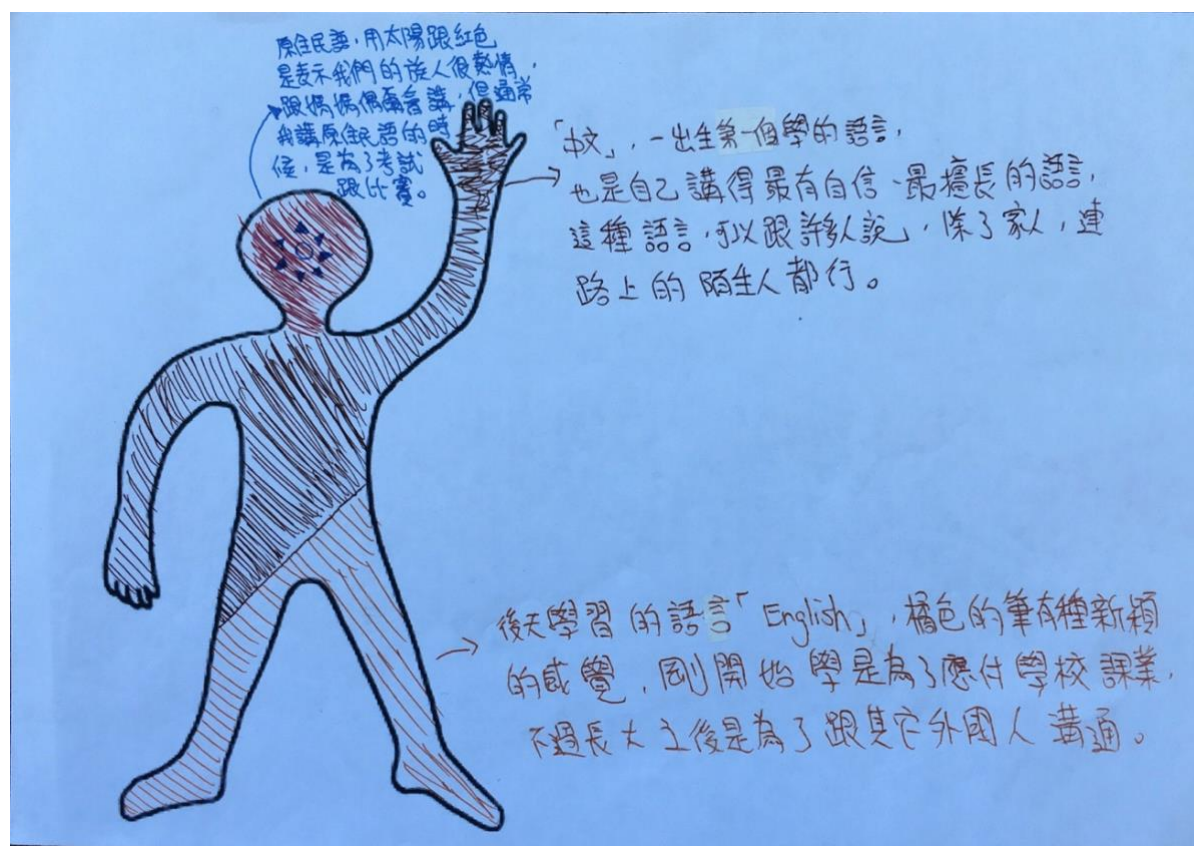 原住民語，用太陽跟紅色
是表示我們的族人很熱情，
跟媽媽偶爾會講，但通常
我講原住民語的時
候，是為了考試
跟比賽。
「中文」，一出生第一個學的語言，
也是自己講得最有自信、最擅長的語言，
這種語言，可以跟許多人說，除了家人，連
路上的陌生人都行。
後天學習的語言「English」，橘色的筆有種新穎
的感覺，剛開始學是為了應付學校課業，
不過長大之後是為了跟其它外國人溝通。